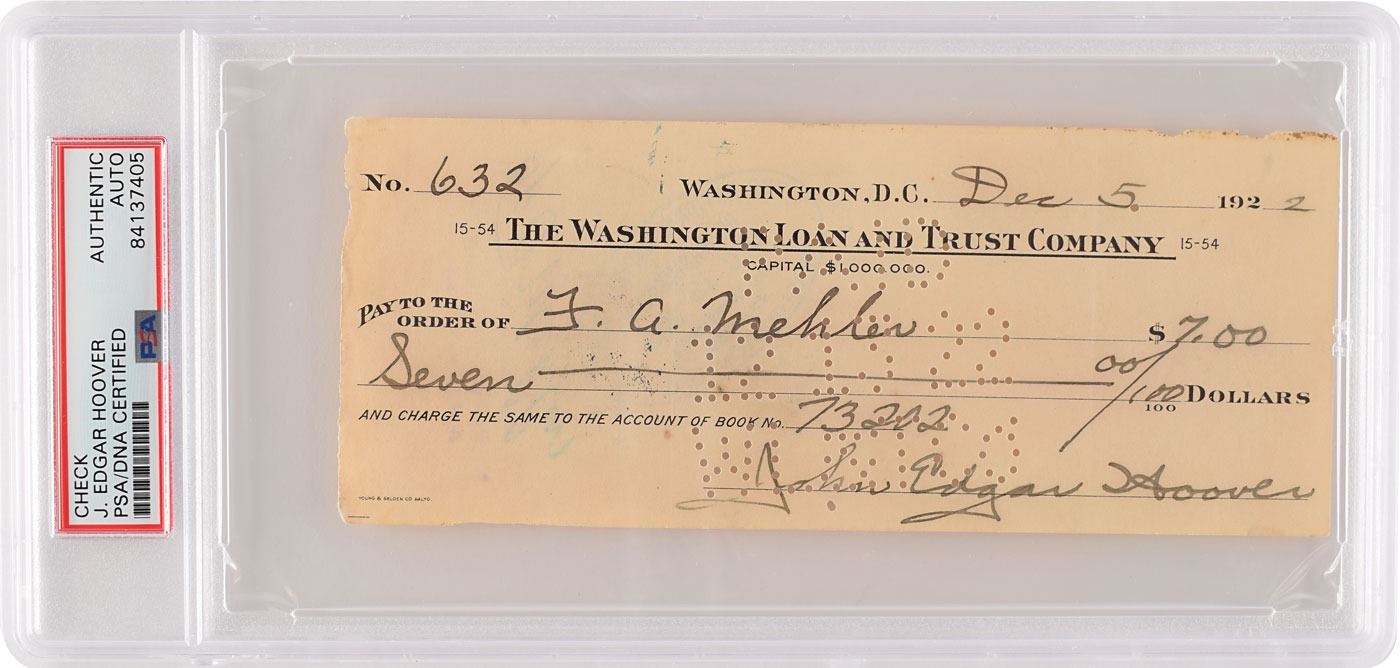 CHECK
J. EDGAR HOOVER
PSA/DNA CERTIFIED
AUTHENTIC
AUTO
84137405
PSA
No. 632 WASHINGTON, D.C. Dec 5 1922
15-54 THE WASHINGTON LOAN AND TRUST COMPANY 15-54
CAPITAL $1,000,000.
PAY TO THE
ORDER OF F. A. Mehler $ 7.00
Seven 00/100 100 DOLLARS
AND CHARGE THE SAME TO THE ACCOUNT OF BOOK No. 73202
John Edgar Hoover
YOUNG & SELDEN CO BALTO.